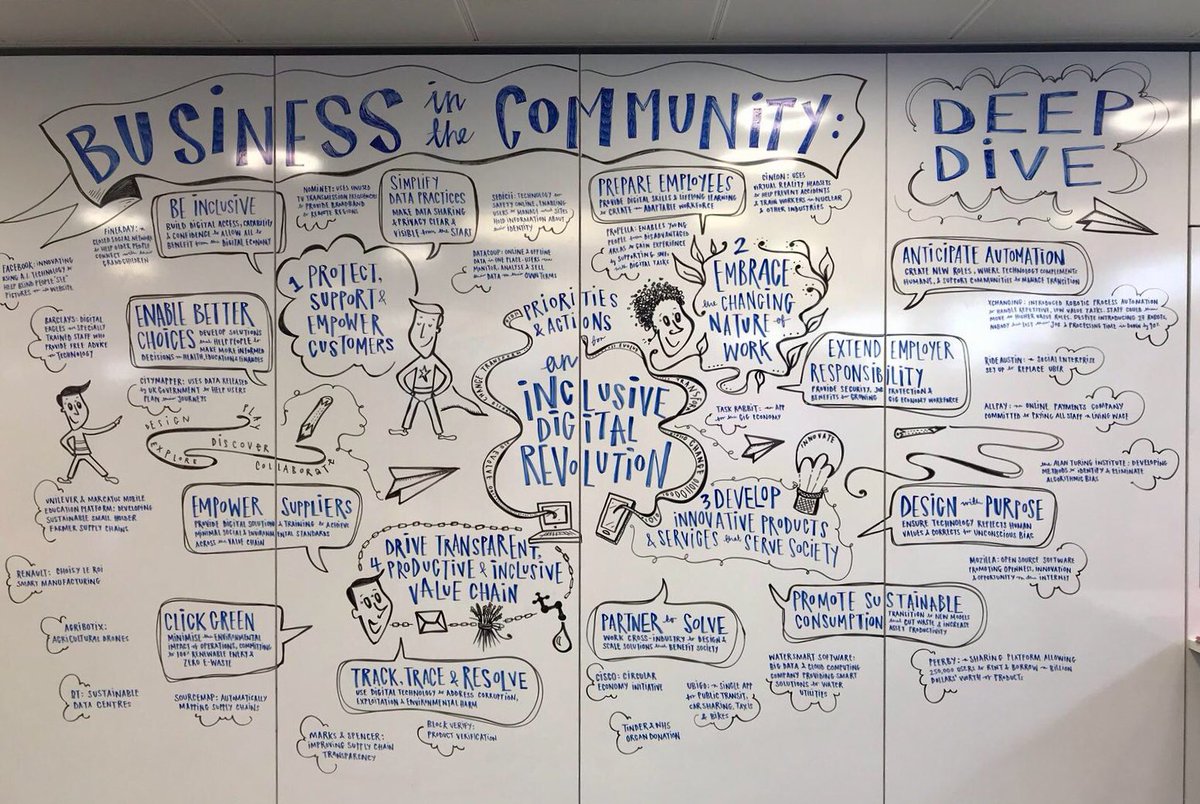 BUSINESS in the COMMUNITY:
DEEP
DIVE
BE INCLUSIVE
BUILD DIGITAL ACCESS, CAPABILITY
& CONFIDENCE to ALLOW ALL to
BENEFIT from the DIGITAL ECONOMY
FINERDAY:
CLOSED SOCIAL NETWORK
to HELP OLDER PEOPLE
CONNECT with their
GRANDCHILDREN
FACEBOOK: INNOVATING
USING A.I. TECHNOLOGY to
HELP BLIND PEOPLE 'SEE'
PICTURES on its WEBSITE
NOMINET: USES UNUSED
TV TRANSMISSION FREQUENCIES
to PROVIDE BROADBAND
to REMOTE REGIONS
SIMPLIFY
DATA PRACTICES
MAKE DATA SHARING
& PRIVACY CLEAR &
VISIBLE from the START
SEDICII: TECHNOLOGY for
SAFETY ONLINE, ENABLING
USERS to MANAGE what SITES
HOLD INFORMATION ABOUT
their IDENTITY
DATACOUP: ONLINE & OFFLINE
DATA in ONE PLACE. USERS
MONITOR, ANALYSE & SELL
their DATA on their OWN TERMS
1 PROTECT,
SUPPORT &
EMPOWER
CUSTOMERS
ENABLE BETTER
CHOICES DEVELOP SOLUTIONS
that HELP PEOPLE to
MAKE MORE INFORMED
DECISIONS on HEALTH, EDUCATION & FINANCES
BARCLAYS: DIGITAL
EAGLES are SPECIALLY
TRAINED STAFF WHO
PROVIDE FREE ADVICE
on TECHNOLOGY
CITYMAPPER: USES DATA RELEASED
by UK GOVERNMENT to HELP USERS
PLAN their JOURNEYS
DESIGN
EXPLORE
DISCOVER
COLLABORATE
PREPARE EMPLOYEES
PROVIDE DIGITAL SKILLS & LIFELONG LEARNING
to CREATE an ADAPTABLE WORKFORCE
PROPELLA: ENABLES YOUNG
PEOPLE from DISADVANTAGED
AREAS to GAIN EXPERIENCE
by SUPPORTING SMEs
with DIGITAL TASKS
CINEON: USES
VIRTUAL REALITY HEADSETS
to HELP PREVENT ACCIDENTS
& TRAIN WORKERS in NUCLEAR
& OTHER INDUSTRIES
2
EMBRACE
the CHANGING
NATURE of
WORK
PRIORITIES
& ACTIONS
for
an
INCLUSIVE
DIGITAL
REVOLUTION
ANTICIPATE AUTOMATION
CREATE NEW ROLES, WHERE TECHNOLOGY COMPLEMENTS
HUMANS, & SUPPORT COMMUNITIES to MANAGE TRANSITION
XCHANGING: INTRODUCED ROBOTIC PROCESS AUTOMATION
to HANDLE REPETITIVE, LOW VALUE TASKS. STAFF COULD
MOVE to HIGHER VALUE ROLES. DESPITE INTRODUCING 27 ROBOTS,
NOBODY has LOST their JOB & PROCESSING TIME is DOWN by 90%
EXTEND EMPLOYER
RESPONSIBILITY
PROVIDE SECURITY, JOB PROTECTION &
BENEFITS for GROWING GIG ECONOMY WORKFORCE
RIDEAUSTIN: a SOCIAL ENTERPRISE
SET UP to REPLACE UBER
TASK RABBIT: an APP
for the GIG ECONOMY
ALLPAY: an ONLINE PAYMENTS COMPANY
COMMITTED to PAYING ALL STAFF a LIVING WAGE
INNOVATE
the ALAN TURING INSTITUTE: DEVELOPING
METHODS to IDENTIFY & ELIMINATE
ALGORITHMIC BIAS
UNILEVER & MARCATUS MOBILE
EDUCATION PLATFORM: DEVELOPING
SUSTAINABLE SMALL HOLDER
FARMER SUPPLY CHAINS
EMPOWER SUPPLIERS
PROVIDE DIGITAL SOLUTIONS & TRAINING to ACHIEVE
MINIMAL SOCIAL & ENVIRONMENTAL STANDARDS
ACROSS the VALUE CHAIN
3 DEVELOP
INNOVATIVE PRODUCTS
& SERVICES that SERVE SOCIETY
DESIGN with PURPOSE
ENSURE TECHNOLOGY REFLECTS HUMAN
VALUES & CORRECTS for UNCONSCIOUS BIAS
DRIVE TRANSPARENT,
4 PRODUCTIVE & INCLUSIVE
VALUE CHAIN
MOZILLA: OPEN SOURCE SOFTWARE
PROMOTING OPENNESS, INNOVATION
& OPPORTUNITY on the INTERNET
RENAULT: CHOISY LE ROI
SMART MANUFACTURING
CLICK GREEN
MINIMISE the ENVIRONMENTAL
IMPACT of OPERATIONS, COMMITTING
to 100% RENEWABLE ENERGY &
ZERO E-WASTE
AGRIBOTIX:
AGRICULTURAL DRONES
PARTNER to SOLVE
WORK CROSS-INDUSTRY to DESIGN &
SCALE SOLUTIONS that BENEFIT SOCIETY
PROMOTE SUSTAINABLE
CONSUMPTION TRANSITION to NEW MODELS
that CUT WASTE & INCREASE
ASSET PRODUCTIVITY
BT: SUSTAINABLE
DATA CENTRES
SOURCEMAP: AUTOMATICALLY
MAPPING SUPPLY CHAINS
TRACK, TRACE & RESOLVE
USE DIGITAL TECHNOLOGY to ADDRESS CORRUPTION,
EXPLOITATION & ENVIRONMENTAL HARM
MARKS & SPENCER:
IMPROVING SUPPLY CHAIN
TRANSPARENCY
BLOCK VERIFY:
PRODUCT VERIFICATION
CISCO: CIRCULAR
ECONOMY INITIATIVE
UBIGO: a SINGLE APP
for PUBLIC TRANSIT,
CAR SHARING, TAXIS
& BIKES
TINDER & NHS
ORGAN DONATION
WATERSMART SOFTWARE:
BIG DATA & CLOUD COMPUTING
COMPANY PROVIDING SMART
SOLUTIONS to WATER
UTILITIES
PEERBY: a SHARING PLATFORM ALLOWING
250,000 USERS to RENT & BORROW a BILLION
DOLLARS' WORTH of PRODUCTS